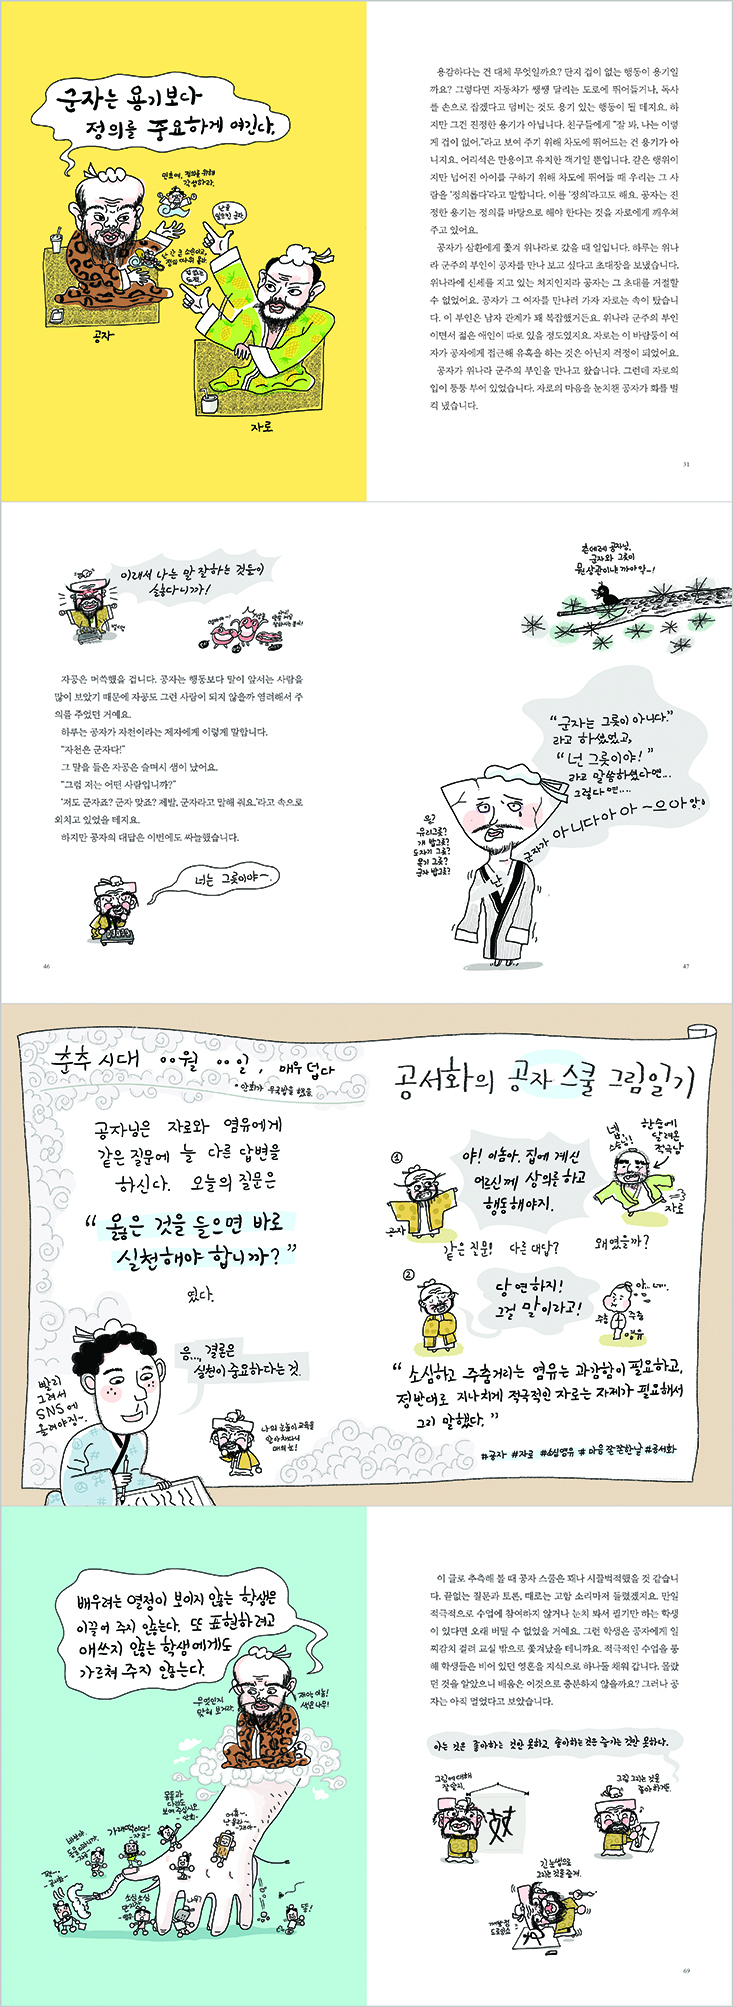 군자는 용기보다
정의를 중요하게 여긴다.
공자
자로
용감하다는 건 대체 무엇일까요? 단지 겁이 없는 행동이 용기일
까요? 그렇다면 자동차가 쌩쌩 달리는 도로에 뛰어들거나, 독사
를 손으로 잡겠다고 덤비는 것도 용기 있는 행동이 될 테지요. 하
지만 그건 진정한 용기가 아닙니다. 친구들에게 “잘 봐, 나는 이렇
게 겁이 없어.”라고 보여 주기 위해 차도에 뛰어드는 건 용기가 아
니지요. 어리석은 만용이고 유치한 객기일 뿐입니다. 같은 행위이
지만 넘어진 아이를 구하기 위해 차도에 뛰어들 때 우리는 그 사
람을 ‘정의롭다’라고 말합니다. 이를 ‘정의’라고도 해요. 공자는 진
정한 용기는 정의를 바탕으로 해야 한다는 것을 자로에게 깨우쳐
주고 있어요.
공자가 삼환에게 쫓겨 위나라로 갔을 때 일입니다. 하루는 위나
라 군주의 부인이 공자를 만나 보고 싶다고 초대장을 보냈습니다.
위나라에 신세를 지고 있는 처지인지라 공자는 그 초대를 거절할
수 없었어요. 공자가 그 여자를 만나러 가자 자로는 속이 탔습니
다. 이 부인은 남자 관계가 꽤 복잡했거든요. 위나라 군주의 부인
이면서 젊은 애인이 따로 있을 정도였지요. 자로는 이 바람둥이 여
자가 공자에게 접근해 유혹을 하는 것은 아닌지 걱정이 되었어요.
공자가 위나라 군주의 부인을 만나고 왔습니다. 그런데 자로의
입이 퉁퉁 부어 있었습니다. 자로의 마음을 눈치챈 공자가 화를 벌
컥 냈습니다.
31
이래서 나는 말 잘하는 것들이
싫다니까!
자공은 머쓱했을 겁니다. 공자는 행동보다 말이 앞서는 사람을
많이 보았기 때문에 자공도 그런 사람이 되지 않을까 염려해서 주
의를 주었던 거예요.
하루는 공자가 자천이라는 제자에게 이렇게 말합니다.
“자천은 군자다!”
그 말을 들은 자공은 슬며시 샘이 났어요.
“그럼 저는 어떤 사람입니까?”
‘저도 군자죠? 군자 맞죠? 제발, 군자라고 말해 줘요.’라고 속으로
외치고 있었을 테지요.
하지만 공자의 대답은 이번에도 싸늘했습니다.
너는 그릇이야~.
46
“군자는 그릇이 아니다.”
라고 하셨었고,
“넌 그릇이야!”
라고 말씀하셨다면...
그렇다면....
난
군자가 아니다아아~으아앙!
유리그릇?
개 밥그릇?
도자기 그릇?
옥기 그릇?
군자 밥그릇?
47
춘추 시대 00월 00일, 매우 덥다
공자님은 자로와 염유에게
같은 질문에 늘 다른 답변을
하신다. 오늘의 질문은
“옳은 것을 들으면 바로
실천해야 합니까?”
였다.
음..., 결론은
실천이 중요하다는 것.
빨리
그려서
SNS에
올려야징~.
공서화의 공자 스쿨 그림일기
①
야! 이놈아, 집에 계신
어르신께 상의를 하고
행동해야지.
공자
넵,
스승님!
한숨에
달려온
적극남
자로
같은 질문! 다른 대답? 왜였을까?
②
당연하지!
그걸 말이라고!
주춤
주춤
염유
“소심하고 주춤거리는 염유는 과감함이 필요하고,
정반대로 지나치게 적극적인 자로는 자제가 필요해서
그리 말했다.”
#공자 #자로 #소심염유 #마음 짠한날 #공서화
배우려는 열정이 보이지 않는 학생은
이끌어 주지 않는다. 또 표현하려고
애쓰지 않는 학생에게도
가르쳐 주지 않는다.
무엇인지
맞혀 보거라.
이 글로 추측해 볼 때 공자 스쿨은 꽤나 시끌벅적했을 것 같습니
다. 끝없는 질문과 토론, 때로는 고함 소리마저 들렸겠지요. 만일
적극적으로 수업에 참여하지 않거나 눈치 봐서 필기만 하는 학생
이 있다면 오래 버틸 수 없었을 거예요. 그런 학생은 공자에게 일
찌감치 걸려 교실 밖으로 쫓겨났을 테니까요. 적극적인 수업을 통
해 학생들은 비어 있던 영혼을 지식으로 하나둘 채워 갑니다. 몰랐
던 것을 알았으니 배움은 이것으로 충분하지 않을까요? 그러나 공
자는 아직 멀었다고 보았습니다.
아는 것은 좋아하는 것만 못하고, 좋아하는 것은 즐기는 것만 못하다.
그림에 대해
잘 알지.
그림 그리는 것을
좋아하거든.
긴 눈썹으로
그리는 것을 즐겨.
69